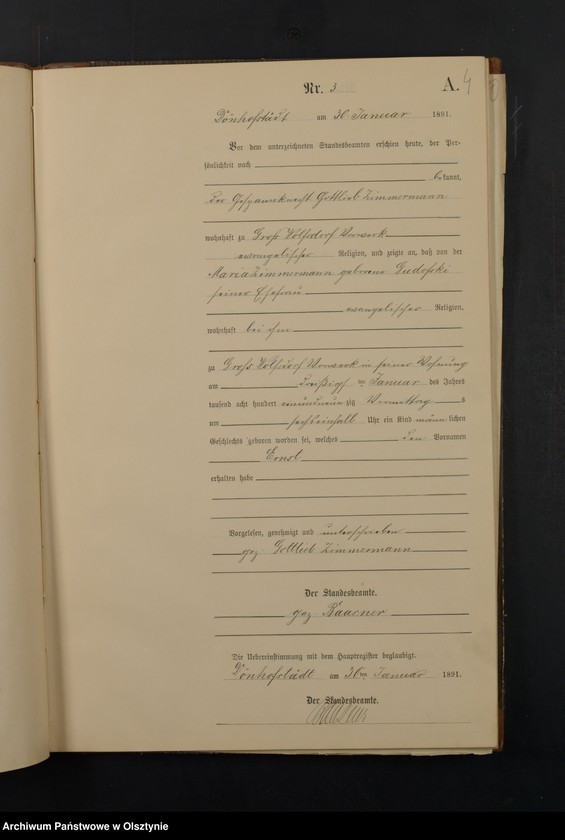 Nr. 3
A. 4
Dönhofstädt am 30 Januar 1891.
Vor dem unterzeichneten Standesbeamten erschien heute, der Per-
sönlichkeit nach
bekannt,
der Gespannknecht Gottlieb Zimmermann
wohnhaft zu Groß Wolfsdorf Vorwerk
evangelischer Religion, und zeigte an, daß von der
Maria Zimmermann geborene
seiner Ehefrau
evangelischer Religion,
wohnhaft bei ihm
zu Groß Wolfsdorf Vorwerk in seiner Wohnung
am dreißigsten Januar des Jahres
tausend acht hundert einundneunzig Vormittags
um Uhr ein Kind männlichen
Geschlechts geboren worden sei, welches den Vornamen
Ernst
erhalten habe
Vorgelesen, genehmigt und unterschrieben
gez. Gottlieb Zimmermann
Der Standesbeamte.
gez Baasner
Die Uebereinstimmung mit dem Hauptregister beglaubigt.
Dönhofstädt am 30ten Januar 1891.
Der Standesbeamte.
Baasner
Archiwum Państwowe w Olsztynie